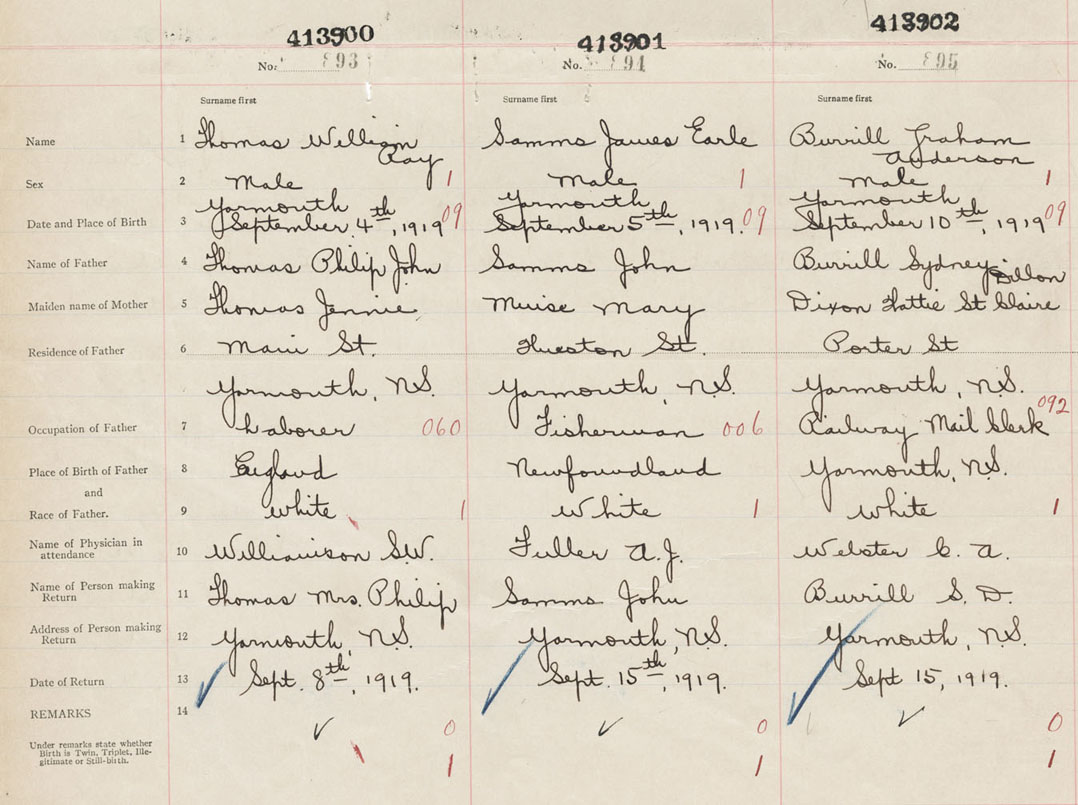 413900 413901 413902
No. 893 No. 894 No. 895
Surname first Surname first Surname first
Name 1 Thomas William Ray Samms James Earle Burrill Graham Anderson
Sex 2 Male 1 Male 1 Male 1
Yarmouth Yarmouth Yarmouth
Date and Place of Birth 3 September 4th, 1919 09 September 5th, 1919. 09 September 10th, 1919 09
Name of Father 4 Thomas Philip John Samms John Burrill Sydney Dillon
Maiden name of Mother 5 Thomas Jennie Muise Mary Dixon Hattie St Claire
Residence of Father 6 Main St. Hueston St. Porter St
Yarmouth, N.S. Yarmouth, N.S. Yarmouth, N.S.
Occupation of Father 7 Laborer 060 Fisherman 006 Railway Mail Clerk 092
Place of Birth of Father 8 England Newfoundland Yarmouth, N.S.
and
Race of Father. 9 White 1 White 1 White 1
Name of Physician in
attendance 10 Williamson S.W. Fuller A.J. Webster C. A.
Name of Person making
Return 11 Thomas Mrs. Philip Samms John Burrill S. D.
Address of Person making
Return 12 Yarmouth, N.S. Yarmouth, N.S. Yarmouth, N.S.
Date of Return 13 Sept. 8th, 1919. Sept. 15th, 1919. Sept 15, 1919.
REMARKS 14 0 0 0
Under remarks state whether
Birth is Twin, Triplet, Ille-
gitimate or Still-birth. 1 1 1